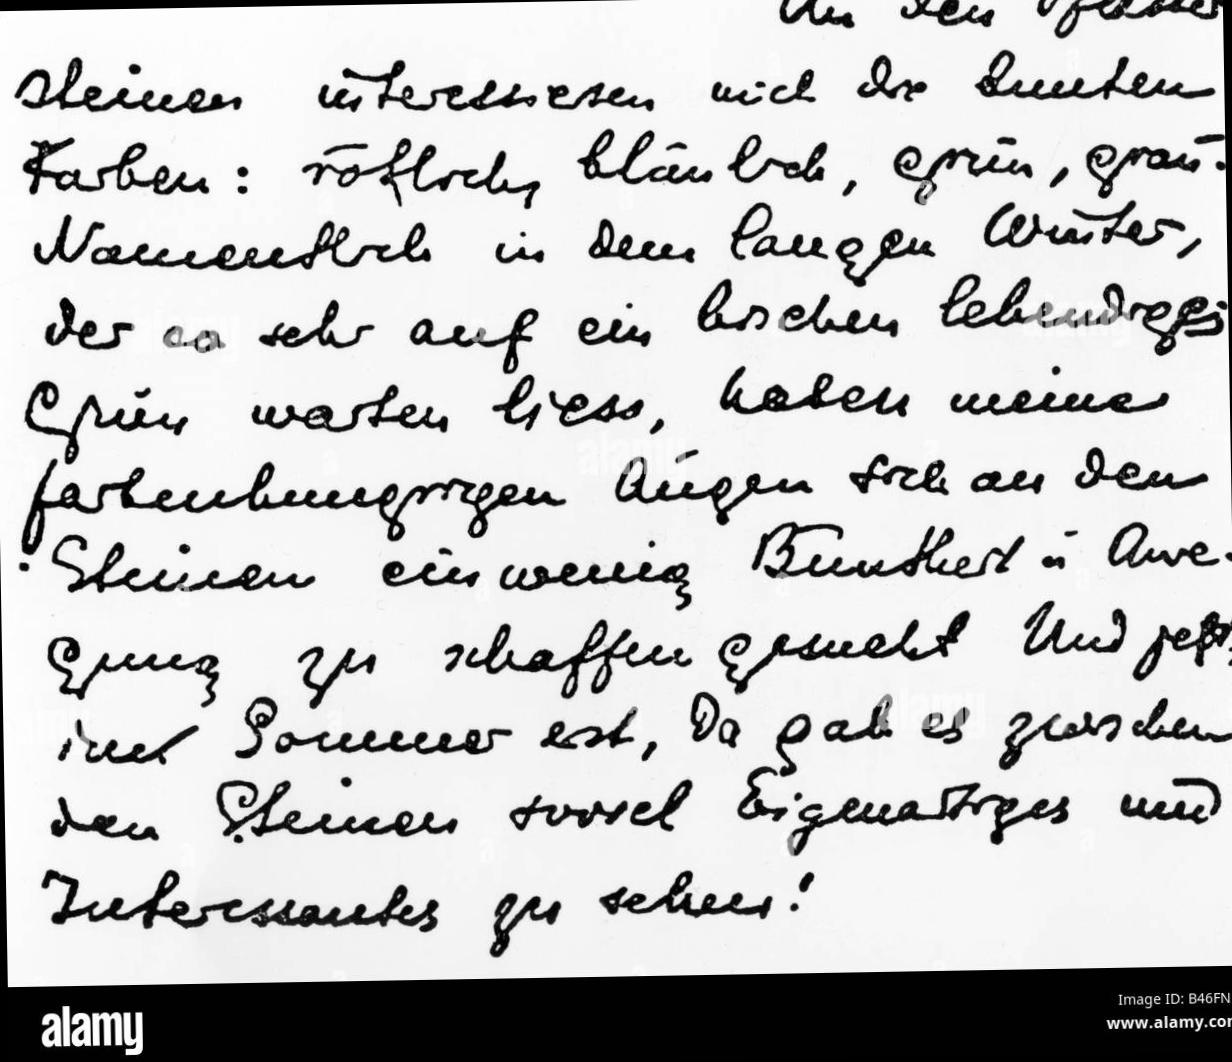 An den Pflaster
steinen interessieren mich die bunten
Farben: rötlich, bläulich, grün, grau.
Namentlich in dem langen Winter,
der so sehr auf ein bischen lebendiges
Grün warten liess, haben meine
farbenhungrigen Augen sich an den
Steinen ein wenig Buntheit u Anre-
gung zu schaffen gesucht Und jetzt,
im Sommer erst, Da gab es zwischen
den Steinen soviel Eigenartiges und
Interessantes zu sehen!
alamy
Image ID: B46FN
www.alamy.com